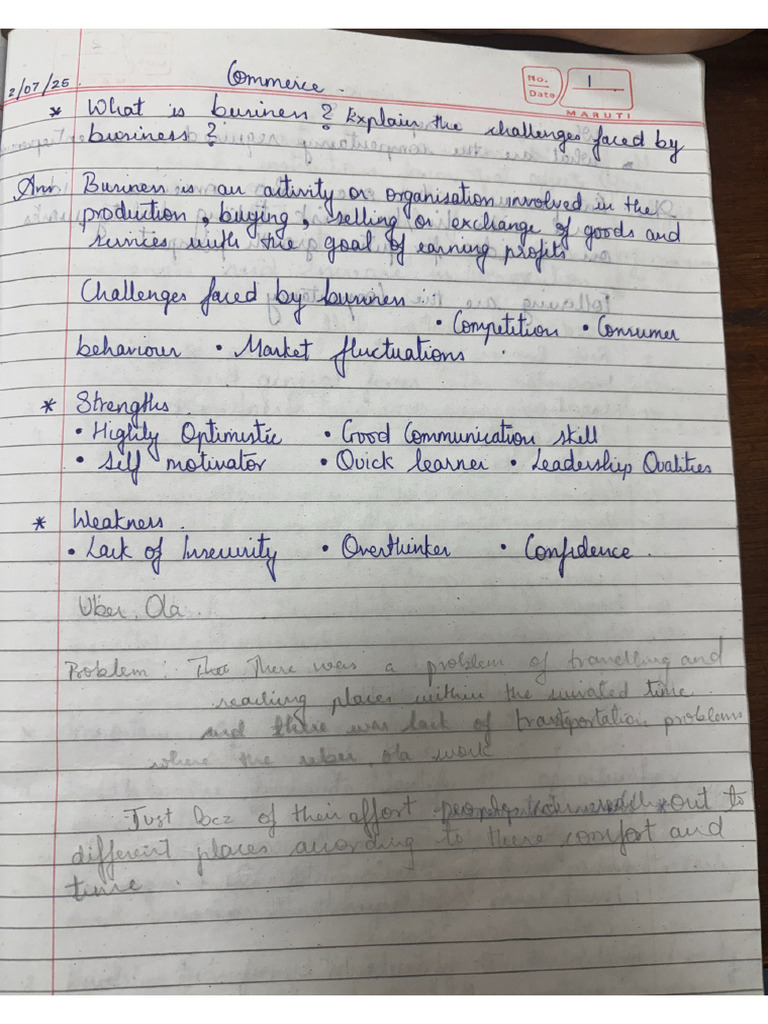 2/07/25
Commerce.
No.
Date
1
MARUTI
* What is business? Explain the challenges faced by
business?
Ans Business is an activity or organisation involved in the
production, buying, selling or exchange of goods and
services with the goal of earning profits.
Challenges faced by business:
• Competition • Consumer
behaviour • Market fluctuations.
* Strengths.
• Highly Optimistic • Good Communication skill
• Self motivator • Quick learner • Leadership Qualities
* Weakness.
• Lack of Insecurity • Overthinker • Confidence.
Uber, Ola.
Problem: There was a problem of travelling and
reaching places within the time.
and there was lack of transportation problems
where the uber, ola work
Just bcz of their affort out to
different places according to there comfort and
time.